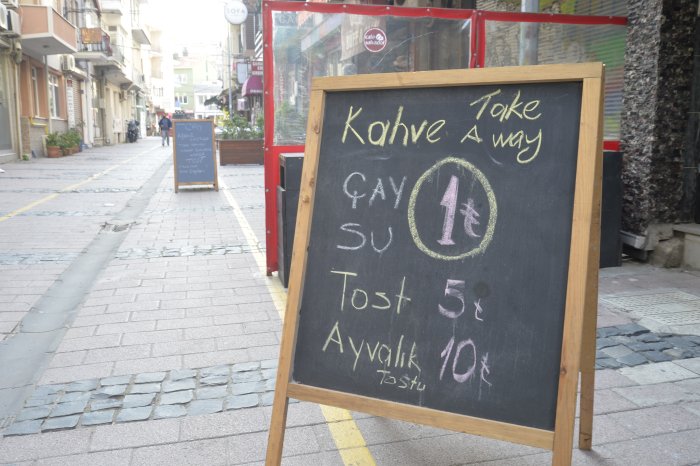 Kahve Take
A way
ÇAY 1₺
SU
Tost 5₺
Ayvalık 10₺
Tostu